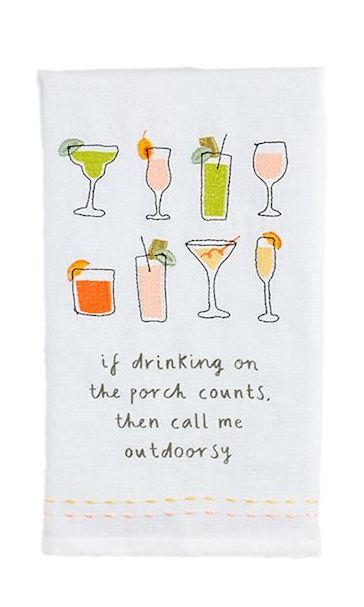 if drinking on
the porch counts,
then call me
outdoorsy